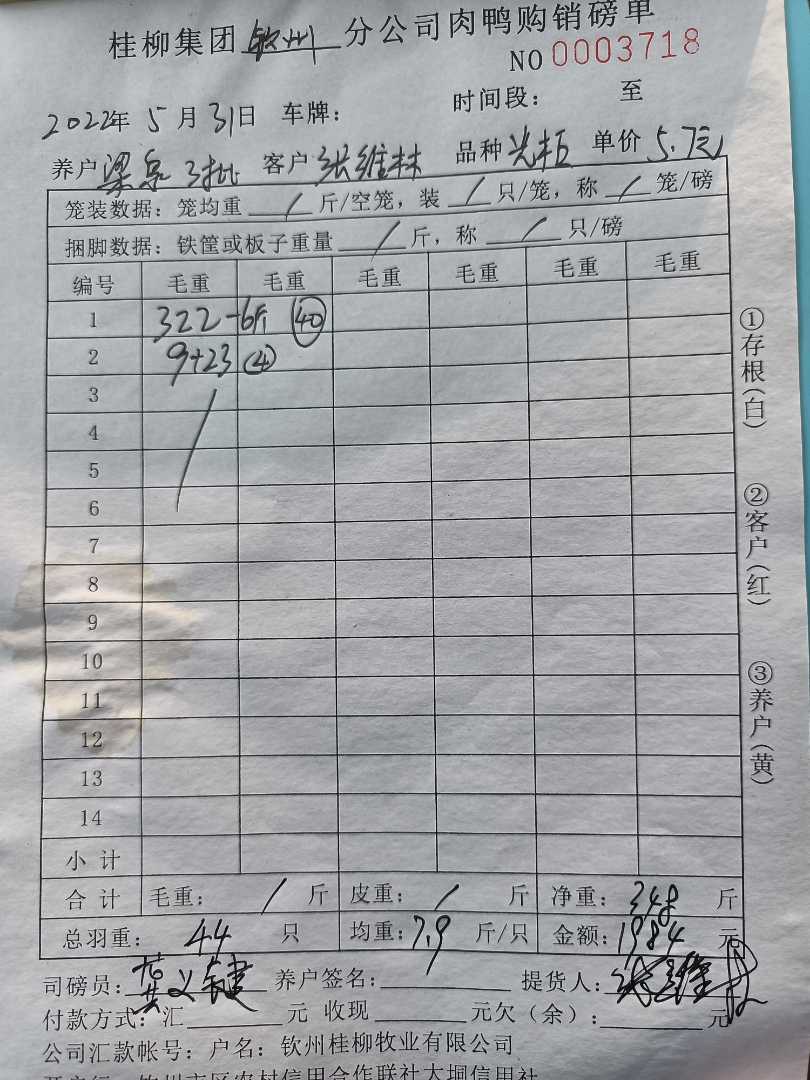 桂柳集团钦州分公司肉鸭购销磅单
NO 0003718
2022年 5月 31日 车牌： 时间段： 至
养户 梁 3批 客户 张维林 品种 单价 5.7元
笼装数据：笼均重 / 斤/空笼，装 / 只/笼，称 / 笼/磅
捆脚数据：铁筐或板子重量 / 斤，称 / 只/磅
编号 毛重 毛重 毛重 毛重 毛重 毛重
1 322-6斤 40
2 9+23 4
3
4
5
6
7
8
9
10
11
12
13
14
小计
合计 毛重： / 斤 皮重： / 斤 净重：348 斤
总羽重： 44 只 均重：7.9 斤/只 金额：1984 元
司磅员：黄义健 养户签名： 提货人：张维林
付款方式：汇 元 收现 元欠（余）： 元
公司汇款帐号：户名：钦州桂柳牧业有限公司
开户行：钦州市区农村信用合作联社大垌信用社
①存根(白)
②客户(红)
③养户(黄)